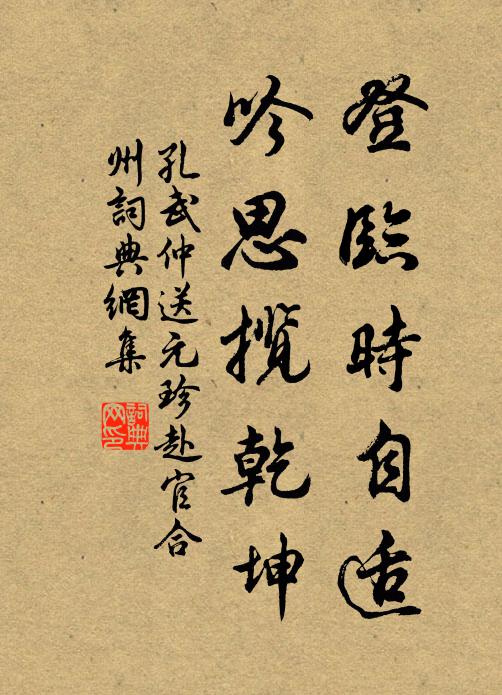 登臨時自适
吟思揽乾坤
孔武仲送元珍赴官合
州詞典網集
詞典
网印